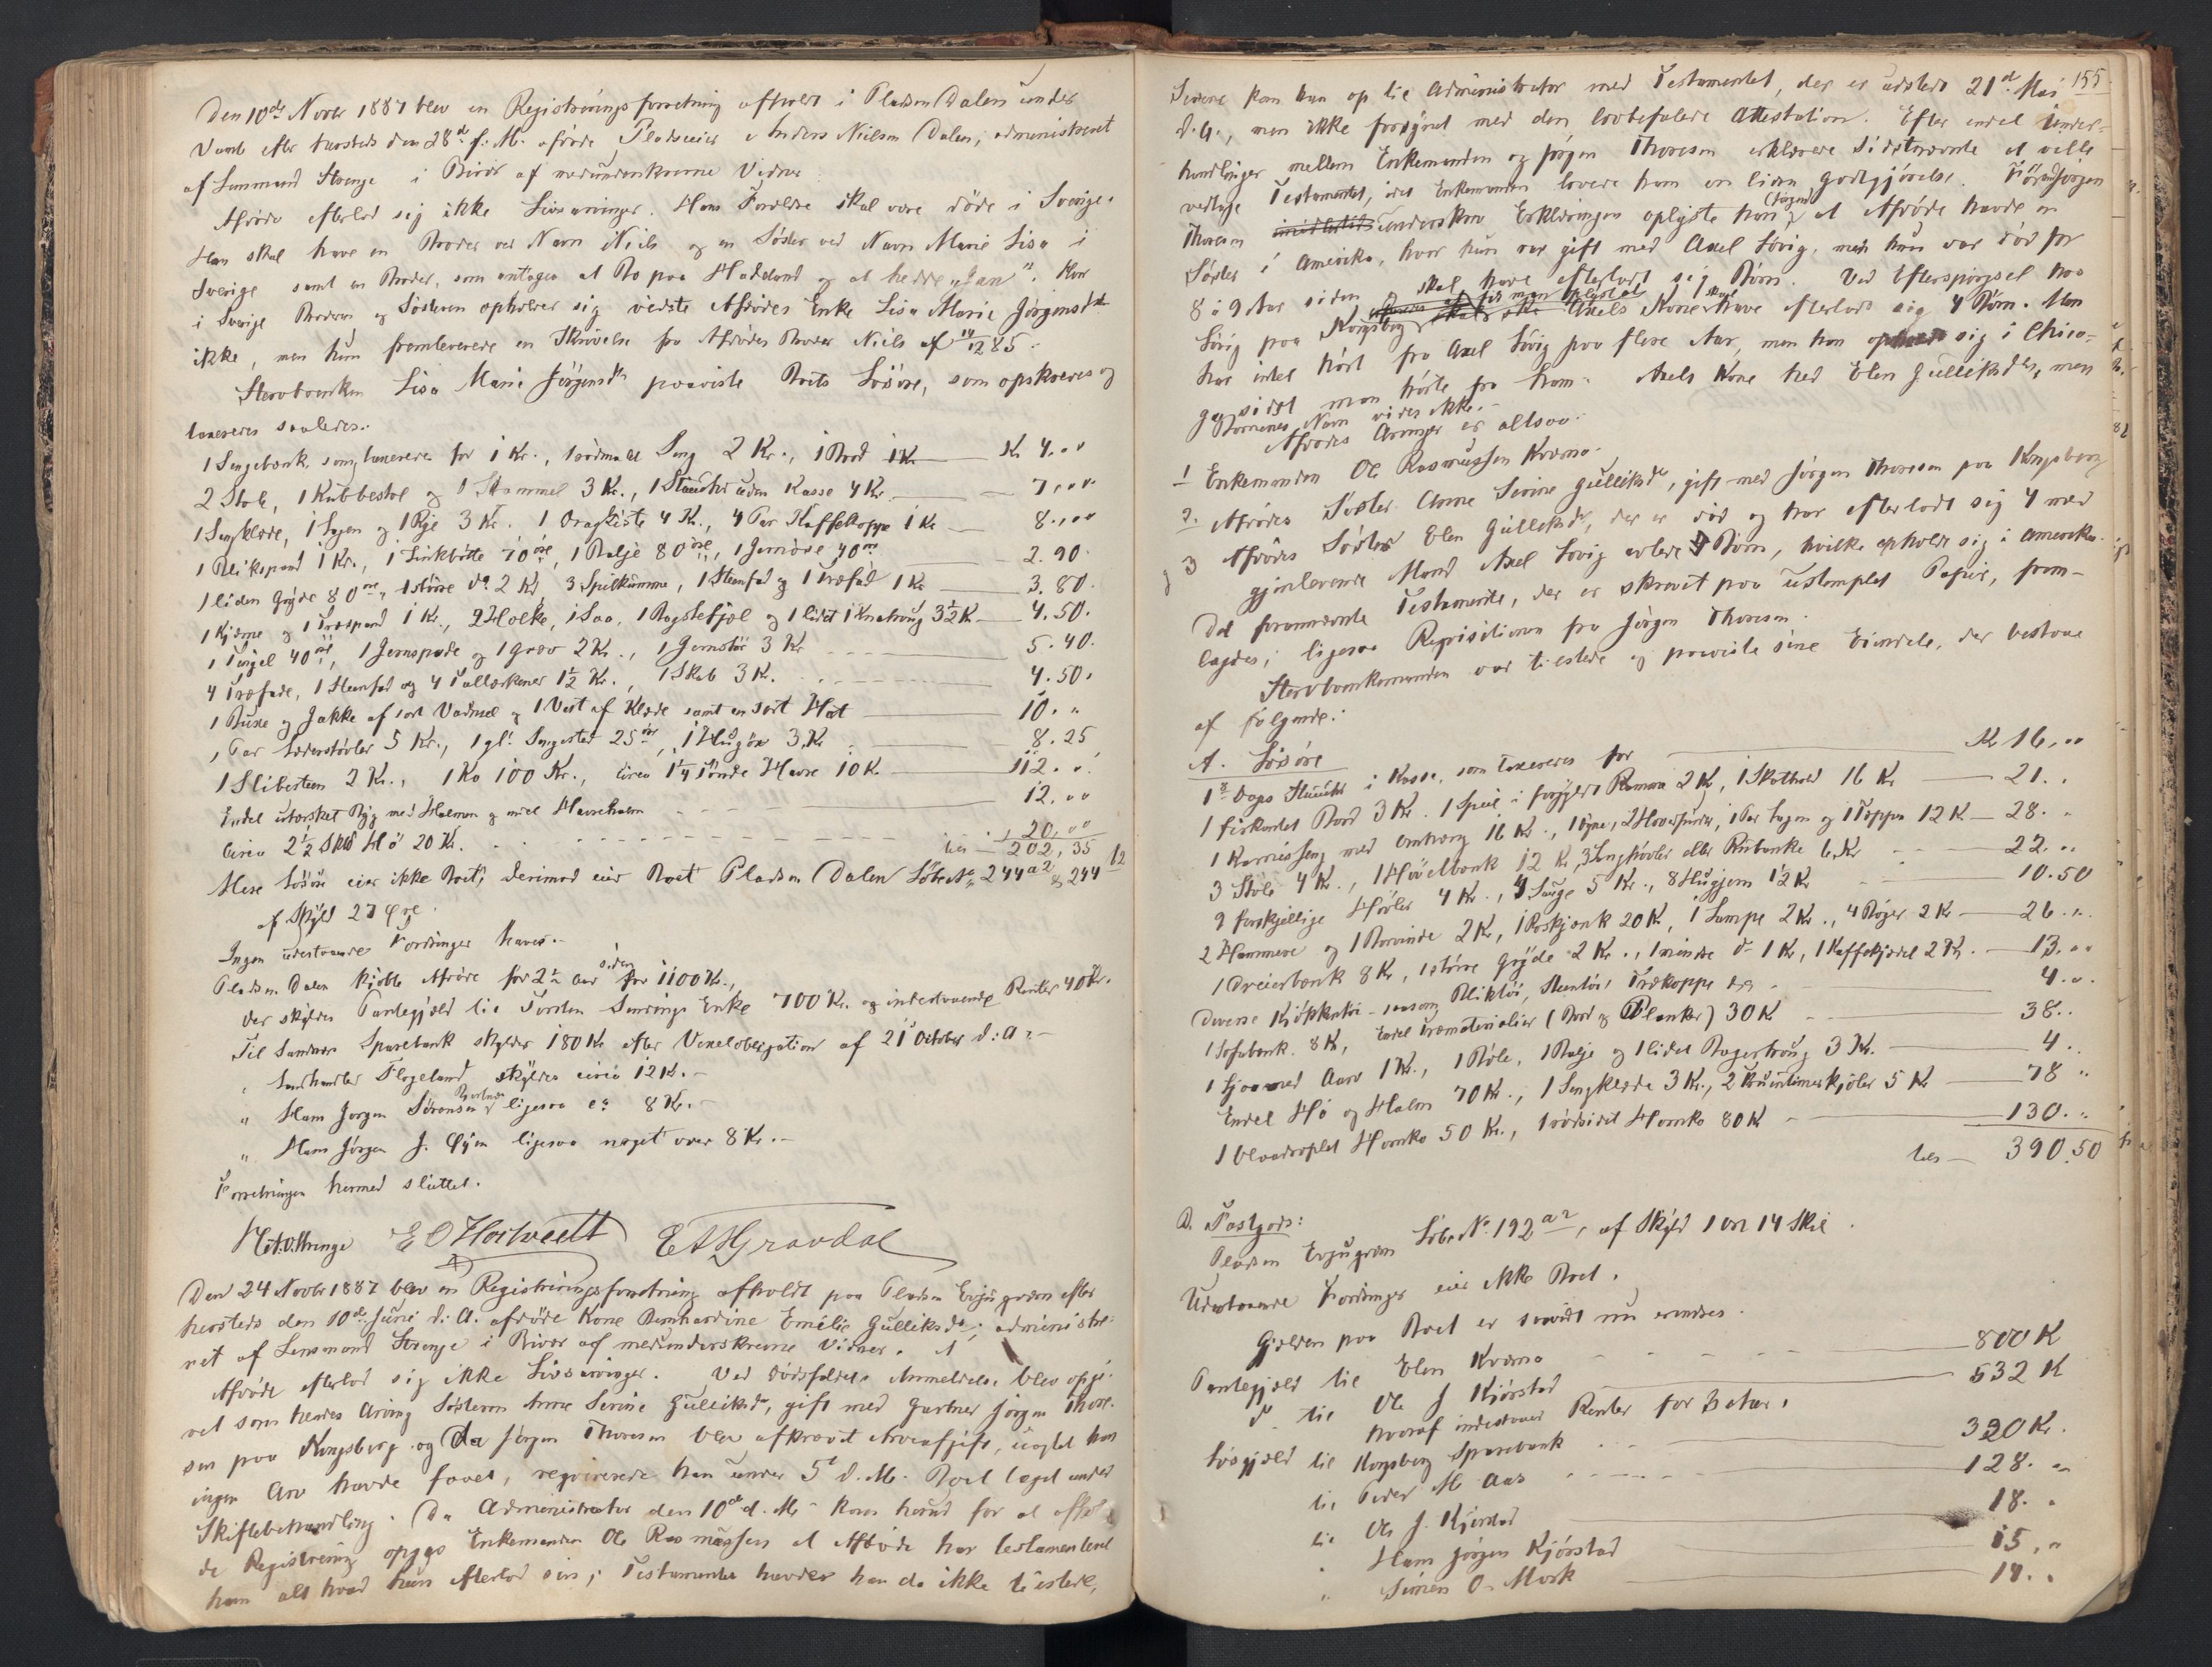 Den 10de Novbr 1887 blev en Registreringsforretning afholdt i Pladsen Dalen under
efter hersteds den 28de f. M. afdøde Pladseier Anders Nielsen Dalen, administreret
af Lensmand Strenge i Bivær af medunderskrevne Vidner
Afdøde efterlod sig ikke Livsarvinger. Hans Forældre skal være døde i Sverige.
Han skal have en Broder ved Navn Niels og en Søster ved Navn Marie Lisa i
Sverige samt en Broder, som antages at Bo paa Hadeland og at hedde "Jan". Hvor
i Sverige Broderen og Søsteren opholder sig vidste Afdødes Enke Lisa Marie Jørgensdtr
ikke, men hun fremleverede en Skrivelse fra Afdødes Broder Niels af 14/12 85.
Stervboenken Lisa Marie Jørgensdtr paaviste Boets Løsøre, som opskreves og
taxeredes saaledes:
1 Sengebænk, som taxeredes for 1 Kr., 1 rødmalt Seng 2 Kr., 1 Bord 1 Kr — Kr 4.00
2 Stole, 1 Kubbestol og 1 Skammel 3 Kr., 1 Stueuhr uden Kasse 4 Kr. — 7.00
1 Sengklæde, 1 Lagen og 1 Rye 3 Kr. 1 Dragkiste 4 Kr., 4 Par Kaffekoppe 1 Kr — 8.00
1 Blikspand 1 Kr., 1 Sinkbøtte 70 øre, 1 Balje 80 øre, 1 40 øre — 2.90
1 liden Gryde 80 øre, 1 større do 2 Kr, 3 Spilkumme, 1 Steenfad og 1 Træfad 1 Kr — 3.80.
1 Kjærne og 1 Træspand 1 Kr., 2 Holke, 1 Saa, 1 Bagstefjel og 1 lidet 3½ K — 4.50.
1 40 øre, 1 Jernspade og 1 Græv 2 Kr., 1 3 Kr — 5.40.
4 Træfade, 1 Steenfad og 4 Tallerkener 1½ Kr., 1 Skab 3 Kr. — 4.50.
1 Buxe og Jakke af sort Vadmel og 1 Vest af Klæde samt en sort Hat — 10. "
1 Par Læderstøvler 5 Kr., 1 gl. 25 øre, 1 Hugøx 3 Kr — 8.25
1 Slibesteen 2 Kr., 1 Ko 100 Kr., circa 1¼ Tønde Havre 10 K. — 112. "
Endel utærsket Byg med Halmen og endel Havrehalm — 12.00
Circa 2½ Skd Hø 20 Kr. — 20.00
tils — 202,35
Mere Løsøre eier ikke Boet; derimod eier Boet Pladsen Dalen Løbe No 244 a2 & 244 b2
af Skyld 27 Øre.
Ingen udestaaende Fordringer haves.
Pladsen Dalen kjøbte Afdøde for 2½ Aar siden for 1100 Kr.,
der skyldes Pantegjæld til Torsten Enke 700 Kr. og indestaaende Renter 40 Kr.
Til Sandsvær Sparebank skyldes 180 Kr efter Vexelobligation af 21 October d: A:
" Landhandler Flogeland skyldes circa 12 K.
" Hans Jørgen Sørensen ligesaa ca 8 Kr.
" Hans Jørgen J. Øyen ligesaa noget over 8 Kr.
Forretningen hermed sluttet.
Strenge E O Hostvedt E A Gravdal
Den 24 Novbr 1887 blev en Registreringsforretning afholdt paa Pladsen Evjugræn efter
hersteds den 10de Juni d: A. afdøde Kone Bernhardine Emilie Gulliksdtr, administre-
ret af Lensmand Strenge i Bivær af medunderskrevne Vidner.
Afdøde efterlod sig ikke Livsarvinger. Ved Dødsfaldets Anmeldelse blev opgi-
vet som hendes Arving Søsteren Anne Serine Gulliksdtr, gift med Gartner Jørgen Thore-
sen paa Kongsberg og da Jørgen Thoresen blev afkrævet Arveafgift, uagtet han
ingen Arv havde faaet, requirerede han under 5te d. M. Boet taget under
Skiftebehandling. Da Administrator den 10de d. M. kom herud for at afhol-
de Registrering opgav Enkemanden Ole Rasmussen at Afdøde har testamenteret
ham alt hvad hun efterlod sig; Testamentet havdes han da ikke tilstede,
155
Senere kom han op til Administrator med Testamentet, der er udstedt 21de Mai
d. A., men ikke forsynet med den lovbefalede Attestation. Efter endel Under-
handlinger mellem Enkemanden og Jørgen Thoresen erklærede Sidstnævnte at ville
vedtage Testamentet, idet Enkemanden lovede ham en liden Godtgjørelse. Før Jørgen
Thoresen underskrev Erklæringen oplyste han (Jørgen) at Afdøde havde en
Søster i Amerika, hvor hun var gift med Axel Løvig, men hun var død for
8 à 9 Aar siden og skal have efterladt sig Børn. Ved Efterspørgsel hos
Løvig paa Kongsberg Axels Kone skal have efterladt sig 4 Børn. Man
har intet hørt fra Axel Løvig paa flere Aar, men han opholdt sig i Chica-
go sidst man hørte fra ham. Axels Kone hed Elen Gulliksdtr, men
Børnenes Navn vides ikke.
Afdødes Arvinger er altsaa:
1 Enkemanden Ole Rasmussen Kværne.
2. Afdødes Søster Anne Serine Gulliksdtr, gift med Jørgen Thoresen paa Kongsberg
3 Afdødes Søster Elen Gulliksdtr, der er død og har efterladt sig 4 med
gjenlevende Mand Axel Løvig avlede Børn, hvilke opholde sig i Amerika.
Det forannævnte Testamente, der er skrevet paa ustemplet Papir, frem-
lagdes, ligesaa Reqvisitionen fra Jørgen Thoresen.
Stervboenkemanden var tilstede og paaviste sine Eiendele, der bestaar
af følgende:
A. Løsøre
1 8te Dags Stueuhr i Kasse, som taxeredes for — Kr 16,00
1 firkantet Bord 3 Kr. 1 Speil i forgyldt Ramme 2 Kr, 1 Skathold 16 Kr — 21. "
1 Karmseng med Omhæng 16 Kr., 1 Dyne, 2 Hovedpuder, 1 Par Lagen og 1 Teppe 12 K — 28. "
3 Stole 4 Kr., 1 Høvelbænk 12 Kr, 3 Langhøvler eller Rubanke 6 Kr — 22. "
9 forskjellige Høvler 4 Kr., 4 Sauge 5 Kr., 8 Hugjern 1½ Kr — 10.50
2 Hammere og 1 Borvinde 2 Kr, 1 20 Kr, 1 Lampe 2 Kr., 4 Bøger 2 Kr — 26. "
1 Dreierbænk 8 Kr, 1 større Gryde 2 Kr., 1 mindre do 1 Kr, 1 Kaffekjedel 2 Kr. — 13. "
Diverse Kjøkkentøi saasom Bliktøi, Steentøi, Trækoppe — 4. "
1 Sofabænk 8 Kr, Endel Træmaterialier (Bord og Planker) 30 Kr — 38. "
1 Ljaa med Aarv 1 Kr., 1 Bøle, 1 Balje og 1 lidet Bagertroug 3 Kr. — 4. "
Endel Hø og Halm 70 Kr., 1 Sengklæde 3 Kr., 2 Fruentimmerkjoler 5 Kr — 78 "
1 blaadroplet Hornko 50 Kr., 1 rødsidet Hornko 80 Kr — 130. "
tils — 390.50
B. Fastgods:
Pladsen Evjugræn Løbe No. 192 a2, af Skyld 1 Ort 14 Skil.
Udestaaende Fordringer eier ikke Boet.
Gjælden paa Boet er saavidt nu erindres.
Pantegjæld til Elen Kværne — 800 K
do til Ole J Kjørstad — 532 K
hvoraf indestaaende Renter for 3 Aar.
Løsgjæld til Kongsberg Sparebank — 320 Kr.
til Peder M. Aas — 128. "
til Ole J. Kjørstad — 18. "
" Hans Jørgen Kjørstad — 15. "
" Simen O. Mork — 14. "